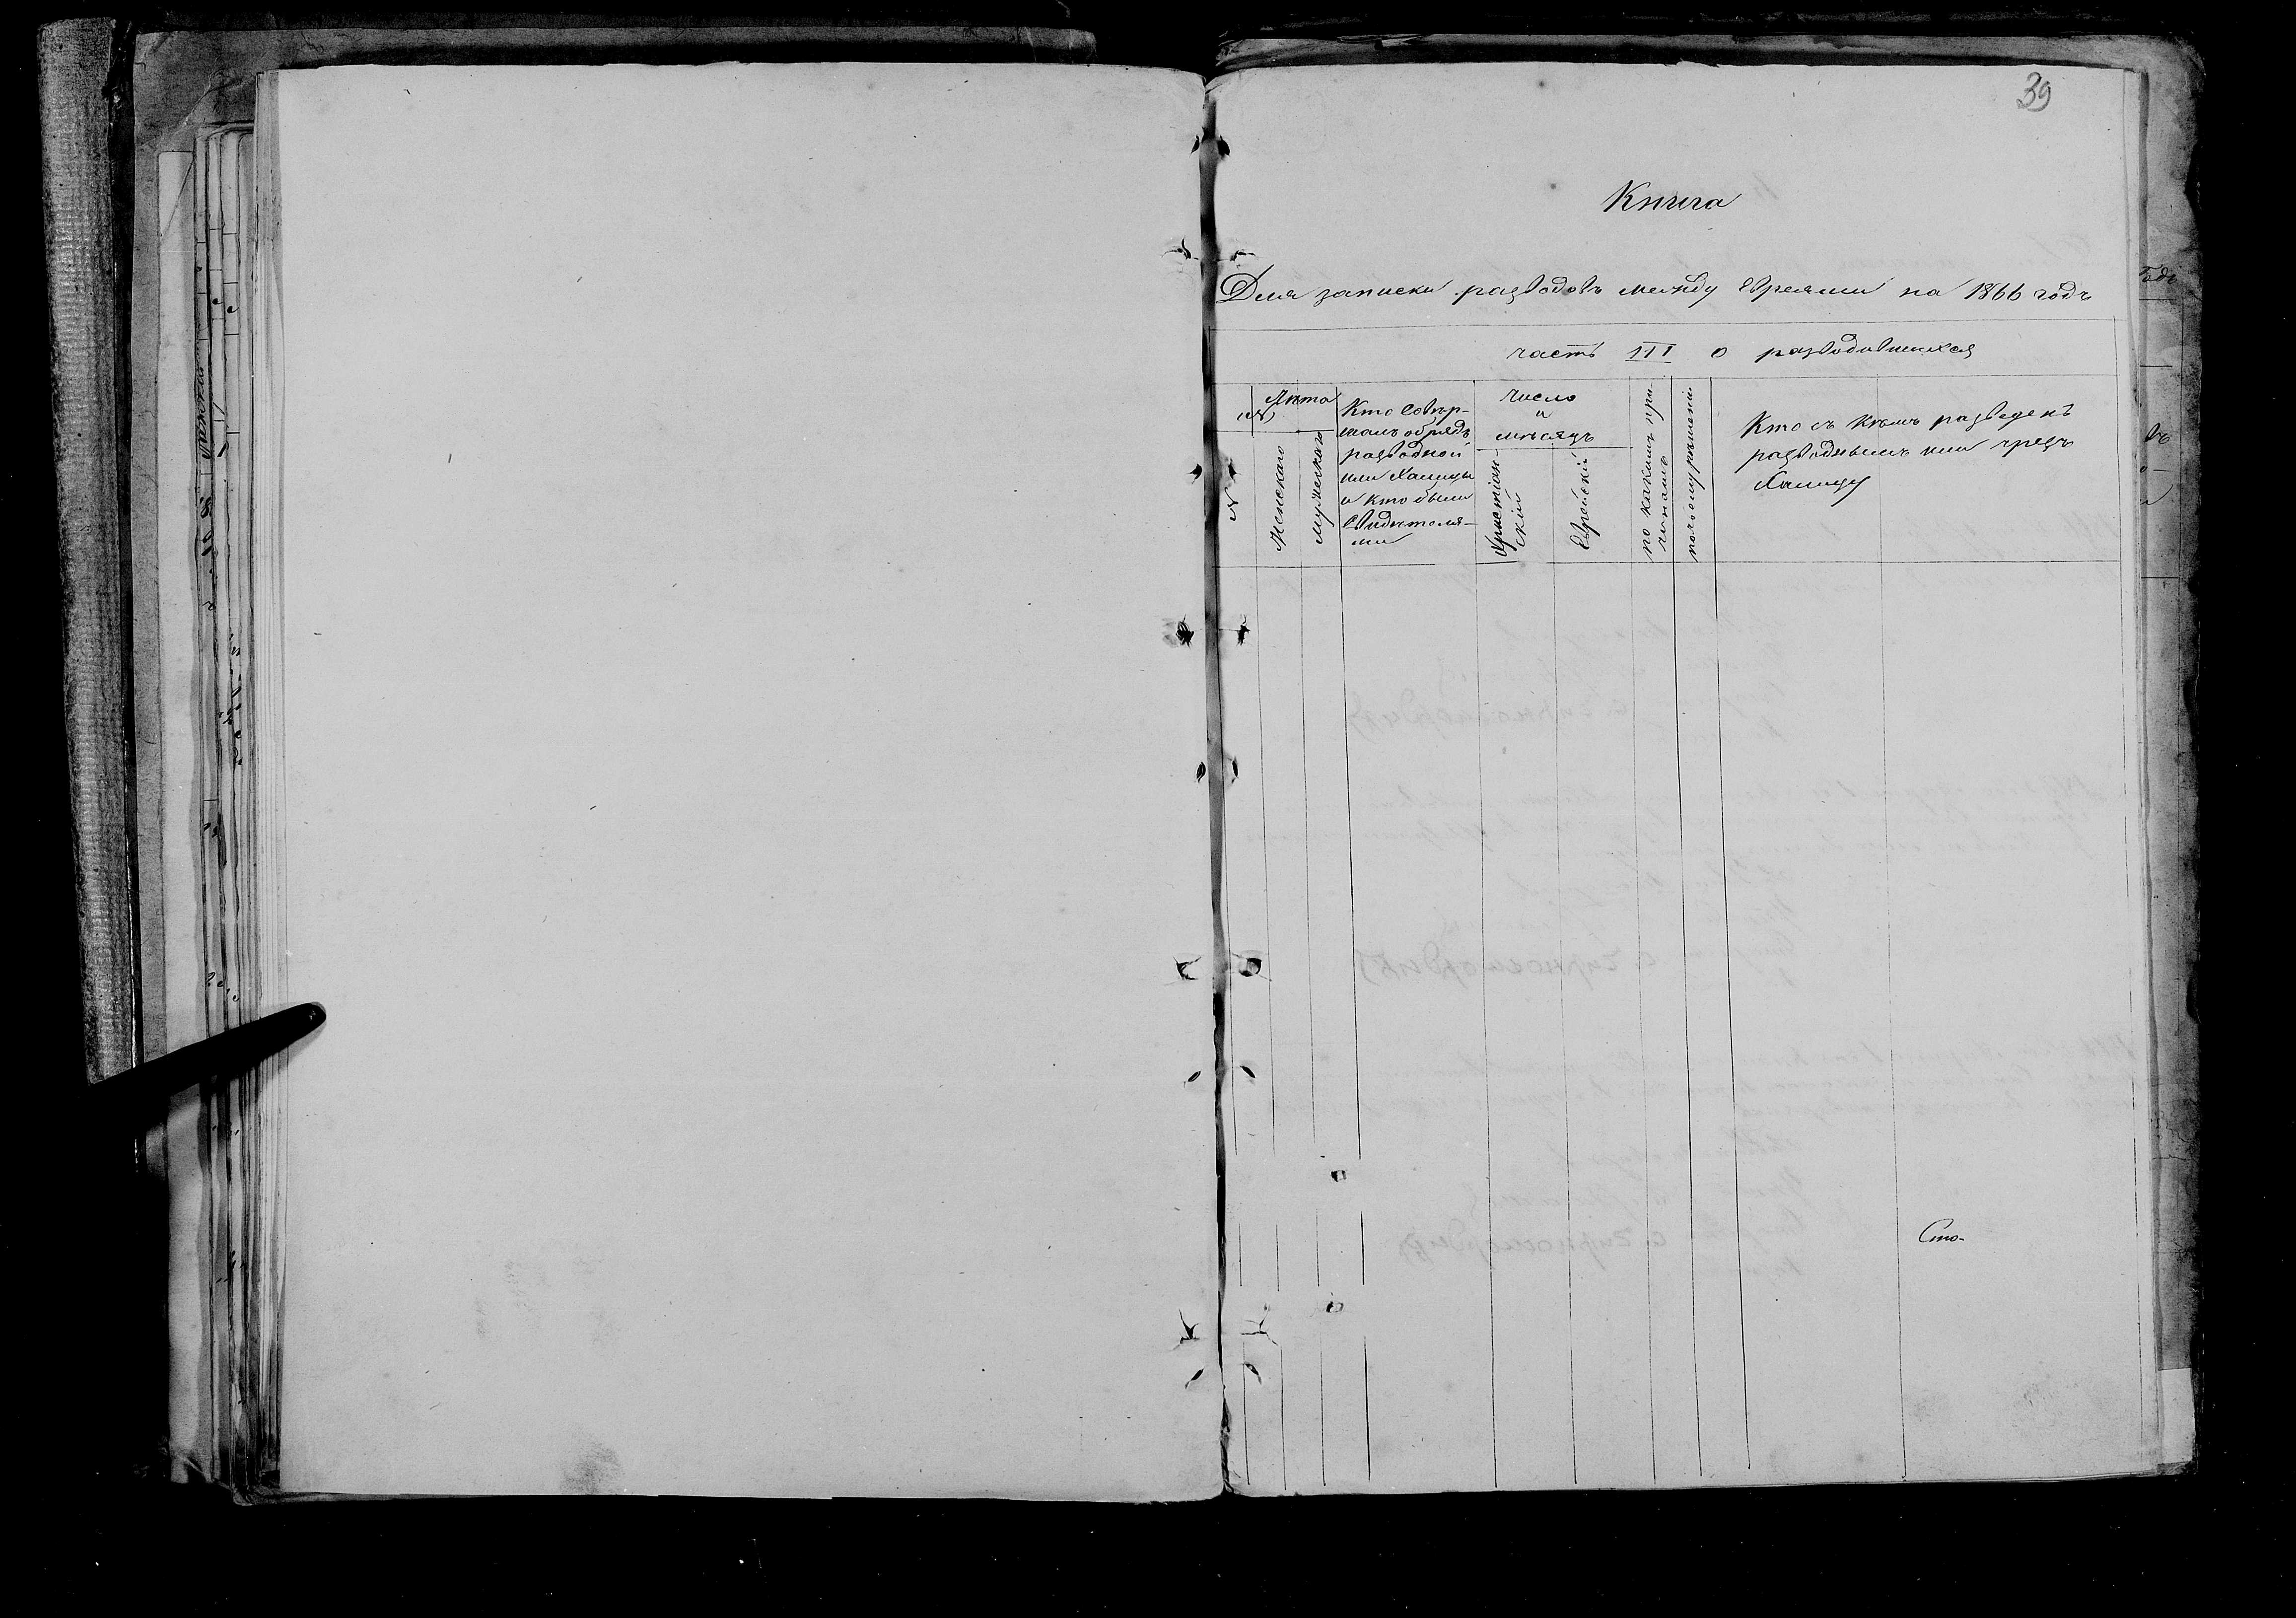 39
Книга
Для записки разводовъ между Евреями на 1866 годъ
часть III о разводившихся
№
Лѣта
Женскаго
Мужескаго
Кто совер-
шалъ обрядъ
разводной
или Халицы
и кто были
свидѣтеля-
ми
Число
и
мѣсяцъ
Христіан-
скій
Еврейскій
по какимъ при-
чинамъ
по чьему рѣшенію
Кто съ кѣмъ разведенъ
разводнымъ или чрезъ
Халицу
Сто-